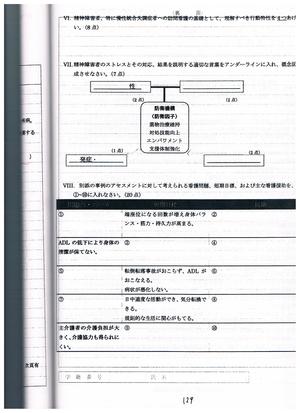 VI. 精神障害者、特に慢性統合失調症者への訪問看護の基礎として、理解すべき行動特性を4つあげ
い。(8点)
VII. 精神障害者のストレスとその対応、結果を説明する適切な言葉をアンダーラインに入れ、概念図
成させなさい。(7点)
性
(2点)
(1点)
防衛機構
(防衛因子)
薬物治療維持
対処技能向上
エンパワメント
支援体制強化
(1点)
(2点)
発症・
VIII. 別添の事例のアセスメントに対して考えられる看護問題、短期目標、および主な看護援助を、
①~⑩に入れなさい。(20点)
①
端座位になる回数が増え身体バラ
ンス・筋力・持久力が高まる。
②
ADL の低下により身体の
清潔が保てない。
③
④
⑤
転倒転落事故がおこらず、ADL が
おこなえる。
病状が悪化しない。
⑥
⑦
日中適度な活動ができ、気分転換で
きる。
規則的な生活に関心がもてる。
⑧
主介護者の介護負担が大
きく、介護協力も得られに
くい。
⑨
⑩
学籍番号
氏名
129